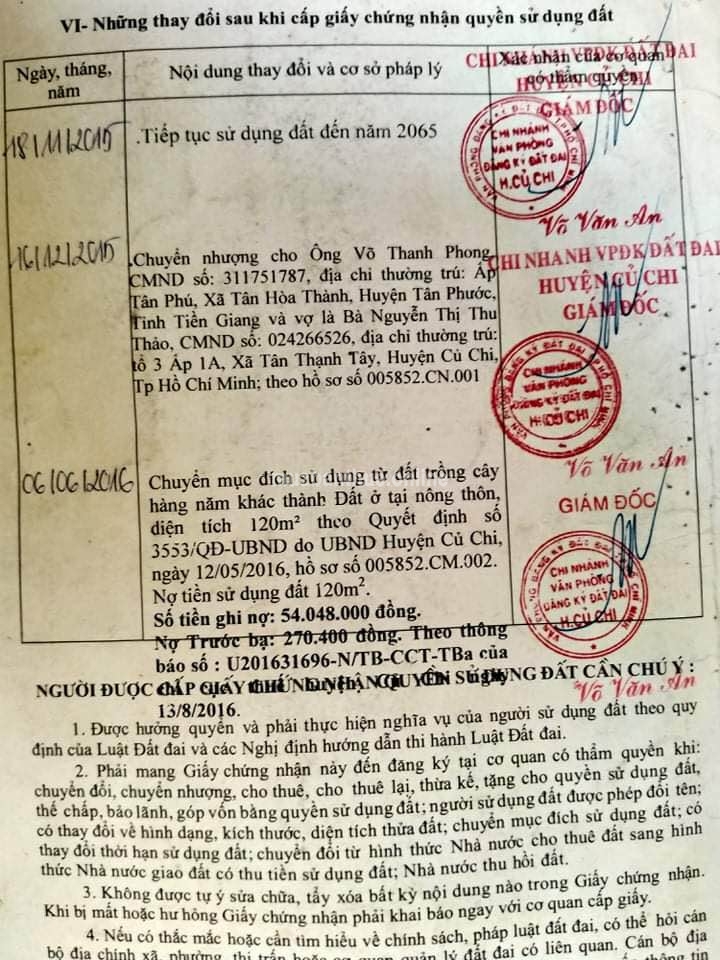 VI- Những thay đổi sau khi cấp giấy chứng nhận quyền sử dụng đất
Ngày, tháng,
năm
Nội dung thay đổi và cơ sở pháp lý
Xác nhận của cơ quan
có thẩm quyền
CHI NHANH VPĐK ĐẤT ĐAI
HUYỆN CỦ CHI
GIÁM ĐỐC
18/11/2015
.Tiếp tục sử dụng đất đến năm 2065
CHI NHÁNH
VĂN PHÒNG
ĐĂNG KÝ ĐẤT ĐAI
H.CỦ CHI
Võ Văn An
16/12/2015
.Chuyển nhượng cho Ông Võ Thanh Phong,
CMND số: 311751787, địa chỉ thường trú: Ấp
Tân Phú, Xã Tân Hòa Thành, Huyện Tân Phước,
Tỉnh Tiền Giang và vợ là Bà Nguyễn Thị Thu
Thảo, CMND số: 024266526, địa chỉ thường trú:
tổ 3 Ấp 1A, Xã Tân Thạnh Tây, Huyện Củ Chi,
Tp Hồ Chí Minh; theo hồ sơ số 005852.CN.001
CHI NHANH VPĐK ĐẤT ĐAI
HUYỆN CỦ CHI
GIÁM ĐỐC
CHI NHÁNH
VĂN PHÒNG
ĐĂNG KÝ ĐẤT ĐAI
H.CỦ CHI
Võ Văn An
06/06/2016
Chuyển mục đích sử dụng từ đất trồng cây
hàng năm khác thành Đất ở tại nông thôn,
diện tích 120m² theo Quyết định số
3553/QĐ-UBND do UBND Huyện Củ Chi,
ngày 12/05/2016, hồ sơ số 005852.CM.002.
Nợ tiền sử dụng đất 120m².
Số tiền ghi nợ: 54.048.000 đồng.
Nợ Trước bạ: 270.400 đồng. Theo thông
báo số : U201631696-N/TB-CCT-TBa của
13/8/2016.
GIÁM ĐỐC
CHI NHÁNH
VĂN PHÒNG
ĐĂNG KÝ ĐẤT ĐAI
H.CỦ CHI
Võ Văn An
NGƯỜI ĐƯỢC CẤP GIẤY CHỨNG NHẬN QUYỀN SỬ DỤNG ĐẤT CẦN CHÚ Ý :
1. Được hưởng quyền và phải thực hiện nghĩa vụ của người sử dụng đất theo quy
định của Luật Đất đai và các Nghị định hướng dẫn thi hành Luật Đất đai.
2. Phải mang Giấy chứng nhận này đến đăng ký tại cơ quan có thẩm quyền khi:
chuyển đổi, chuyển nhượng, cho thuê, cho thuê lại, thừa kế, tặng cho quyền sử dụng đất,
thế chấp, bảo lãnh, góp vốn bằng quyền sử dụng đất; người sử dụng đất được phép đổi tên;
có thay đổi về hình dạng, kích thước, diện tích thửa đất; chuyển mục đích sử dụng đất; có
thay đổi thời hạn sử dụng đất; chuyển đổi từ hình thức Nhà nước cho thuê đất sang hình
thức Nhà nước giao đất có thu tiền sử dụng đất; Nhà nước thu hồi đất.
3. Không được tự ý sửa chữa, tẩy xóa bất kỳ nội dung nào trong Giấy chứng nhận.
Khi bị mất hoặc hư hỏng Giấy chứng nhận phải khai báo ngay với cơ quan cấp giấy.
4. Nếu có thắc mắc hoặc cần tìm hiểu về chính sách, pháp luật đất đai, có thể hỏi cán
bộ địa chính xã, phường, thị trấn hoặc cơ quan quản lý đất đai có liên quan. Cán bộ địa
thông tin